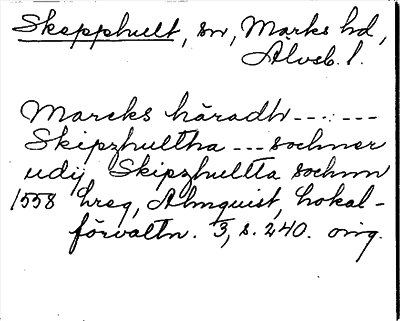 Skepphult, sn, Marks hd,
Älvsb. l.
Marcks häradh -- . -- --
Skipzhultha --- sochner
udij Skipzhultta sochnn
1558 hreg, Almquist, Lokal-
förvaltn. 3, s. 240. orig.